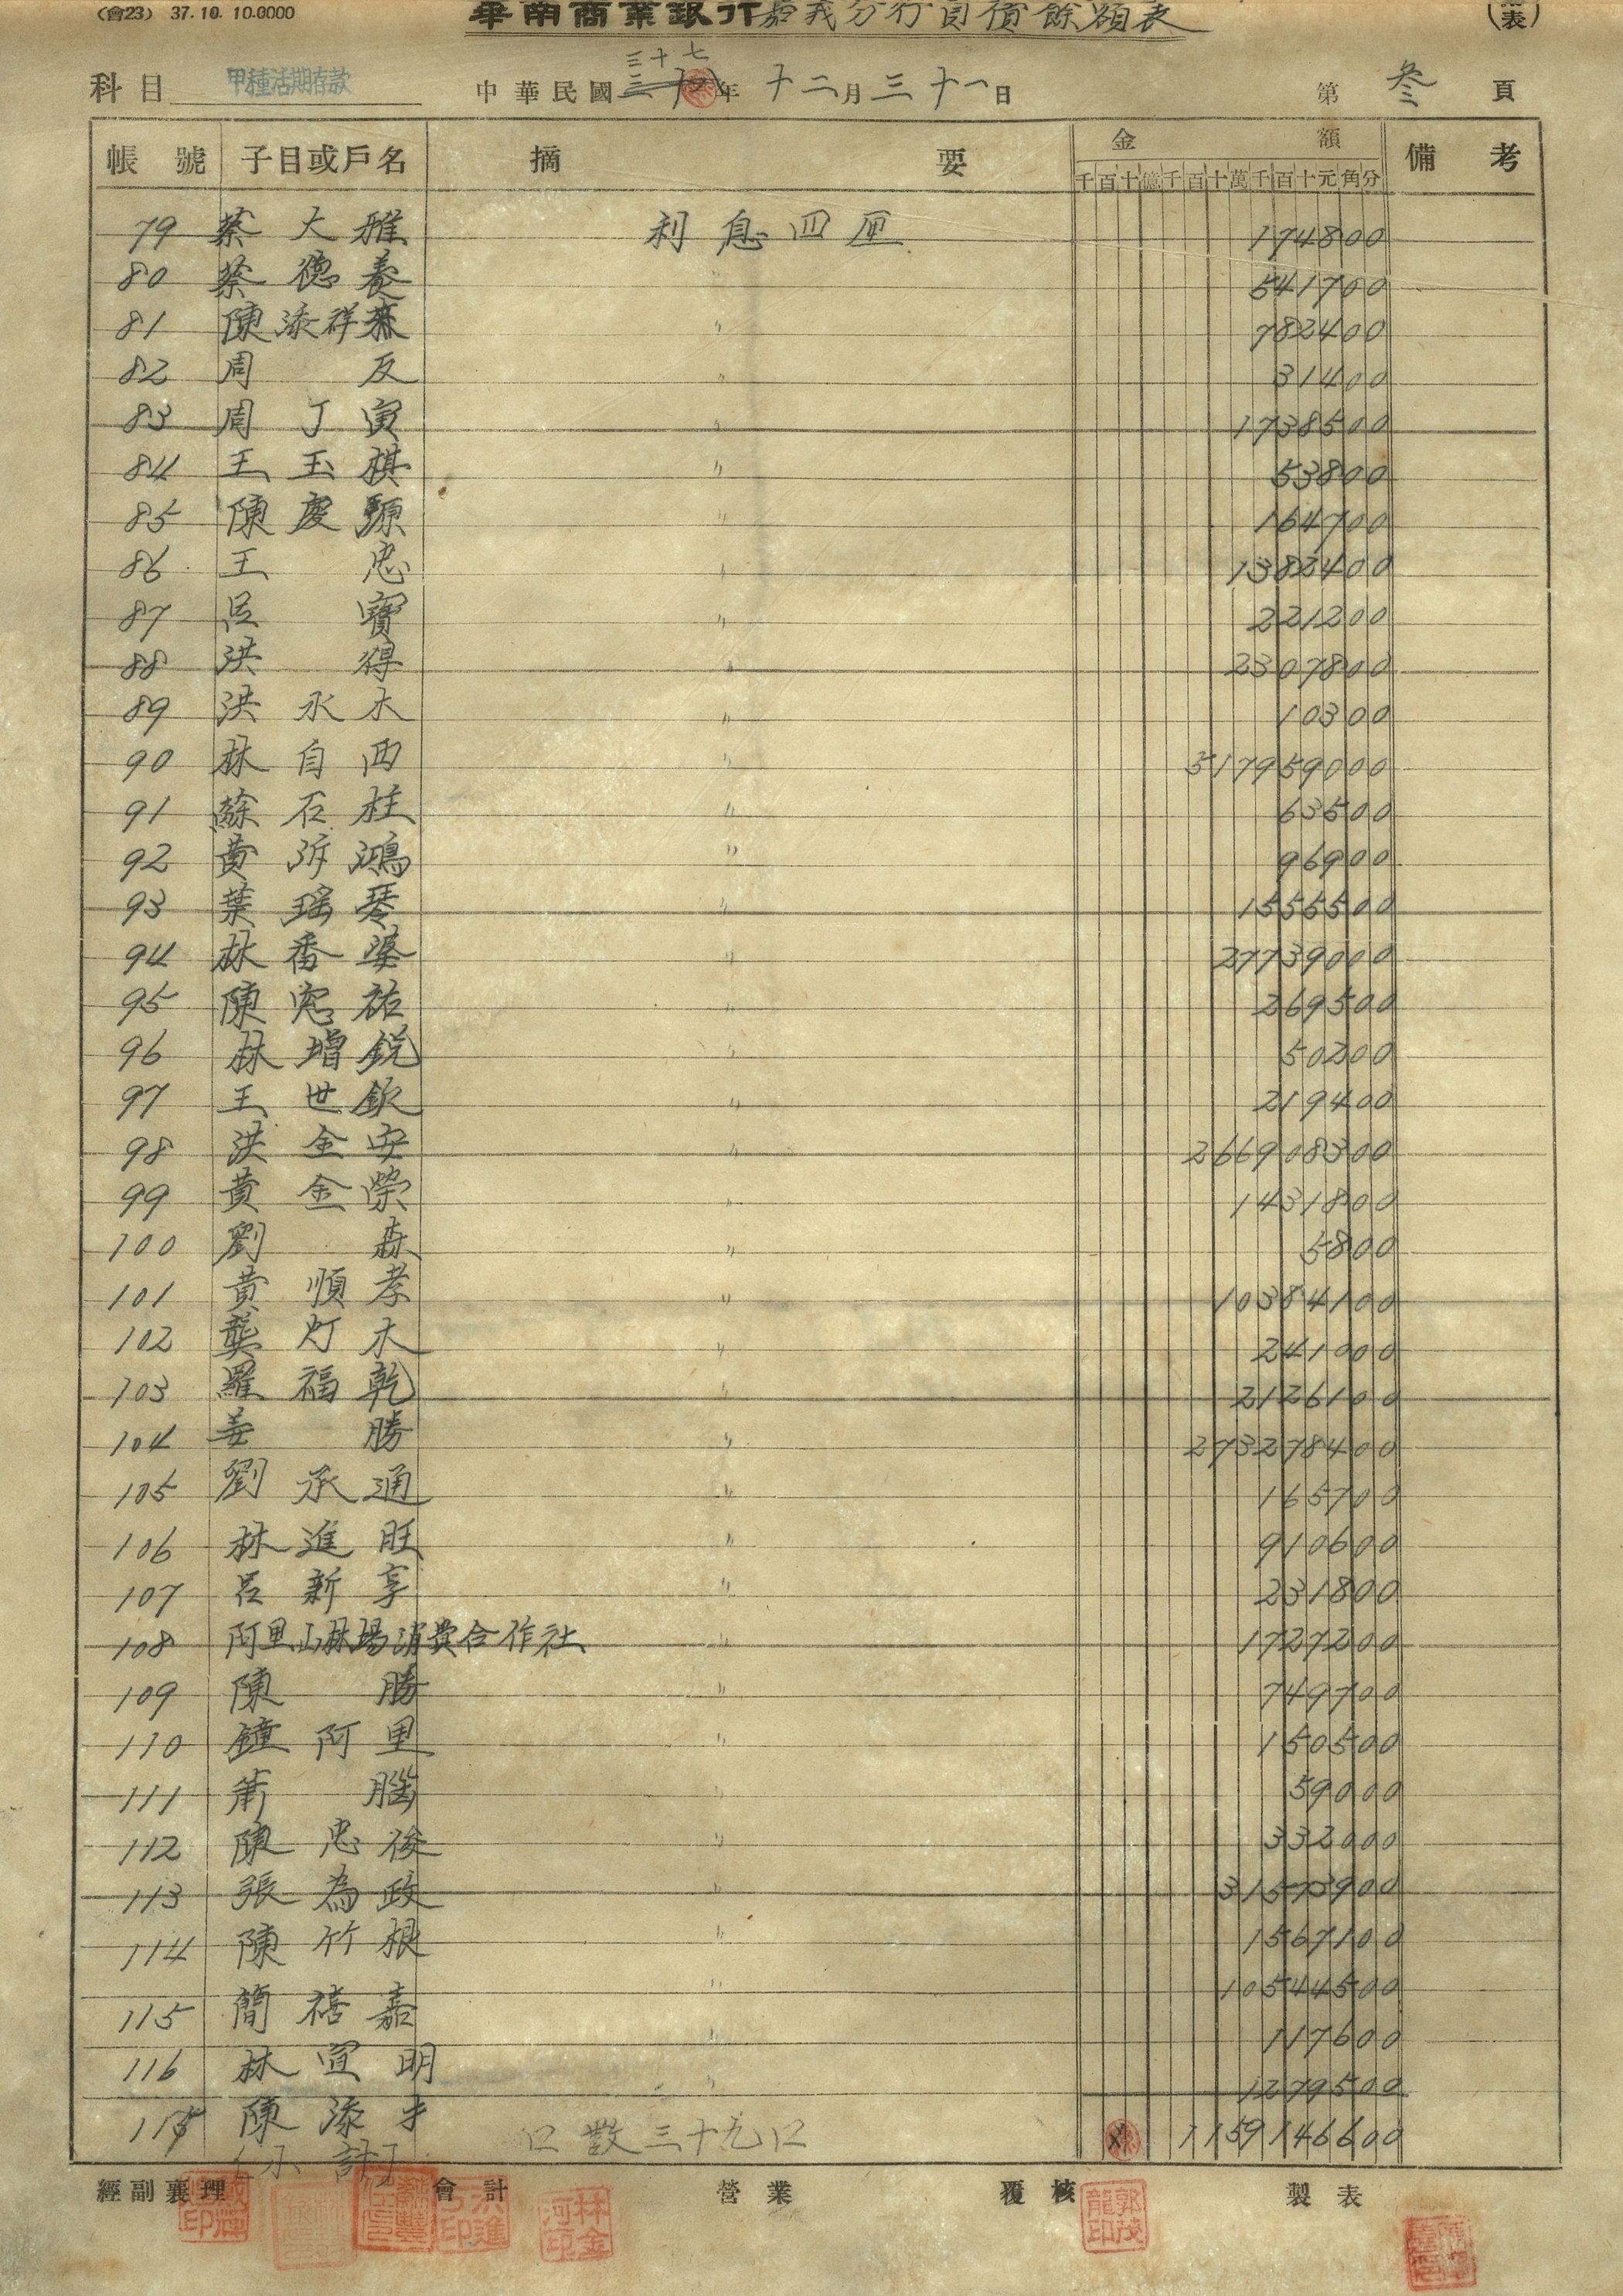 (會23) 37.10. 10.0000
華南商業銀行嘉義分行負債餘額表
表)
科目 甲種活期存款 中華民國三十七年十二月三十一日 第叁頁
帳號 子目或戶名 摘要 金額 備考
千百十億千百十萬千百十元角分
79 蔡大雅 利息四厘 174800
80 蔡德養 〃 541700
81 陳添祥 〃 782400
82 周 〃 31400
83 周丁寅 〃 1738500
84 王玉棋 〃 53800
85 陳慶 〃 164700
86 王忠 〃 1382400
87 呂寶 〃 221200
88 洪得 〃 2307800
89 洪水木 〃 10300
90 林自西 〃 517959000
91 蘇石柱 〃 63500
92 黃鴻 〃 96900
93 葉瑤琴 〃 1556500
94 林番婆 〃 27739000
95 陳祐 〃 269500
96 林增銳 〃 50200
97 王世欽 〃 219400
98 洪金安 〃 266908300
99 黃金榮 〃 1431800
100 劉森 〃 5800
101 黃順孝 〃 10384100
102 龔灯木 〃 241000
103 羅福乾 〃 2126100
104 姜勝 〃 273278400
105 劉承通 〃 165700
106 林進旺 〃 910600
107 呂新享 〃 231800
108 阿里山林場消費合作社 〃 1727200
109 陳勝 〃 749700
110 鐘阿里 〃 150500
111 腦 〃 59000
112 陳忠俊 〃 332000
113 張為政 〃 31573900
114 陳竹根 〃 1567100
115 簡禧嘉 〃 10544500
116 林宜明 〃 117600
117 陳添才 〃 1279500
仝小計 口數三十九口 1159146600
經副襄理 會計 營業 覆核 製表
林金河印
郭茂龍印